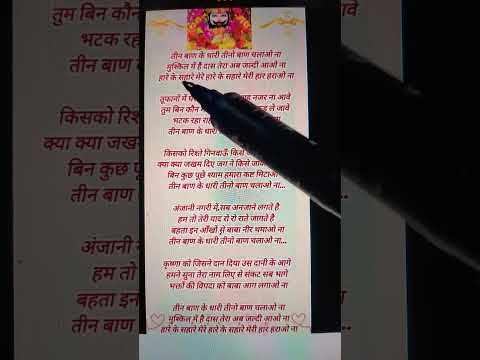 तीन बाण के धारी तीनो बाण चलाओ ना
मुश्किल में है दास तेरा अब जल्दी आओ ना
हारे के सहारे मेरे हारे के सहारे मेरी हार हराओ ना
तूफानों में नजर ना आवे
तुम बिन कौन ले जावे
भटक रहा ना
तीन बाण के ना...
किसको रिश्ते गिनवाऊँ किसे
क्या क्या जखम दिए जग ने किसे
बिन कुछ पूछे श्याम हमारा कष्ट मिटाओ
तीन बाण के धारी तीनो बाण चलाओ ना...
अंजानी नगरी में,सब अनजाने लगते है
हम तो तेरी याद रो रो राते जागते है
बहता इन आँखों से बाबा नीर थमाओ ना
तीन बाण के धारी तीनो बाण चलाओ ना...
कृष्णा को जिसने दान दिया उस दानी के आगे
हमने सुना तेरा नाम लिए से संकट सब भागे
भक्तों की विपदा को बाबा आग लगाओ ना
तीन बाण के धारी तीनो बाण चलाओ ना
मुश्किल में है दास तेरा अब जल्दी आओ ना
हारे के सहारे मेरे हारे के सहारे मेरी हार हराओ ना